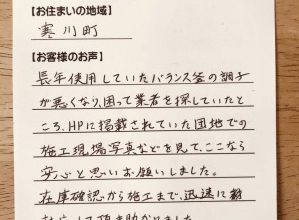 【お住まいの地域】
寒川町
【お客様のお声】
長年使用していたバランス釜の調子
が悪くなり、困って業者を探していたと
ころ、HPに掲載されていた団地での
施工現場写真などを見て、ここなら
安心と思いお願いしました。
在庫確認から施工まで、迅速に
対応して頂き助かりました。